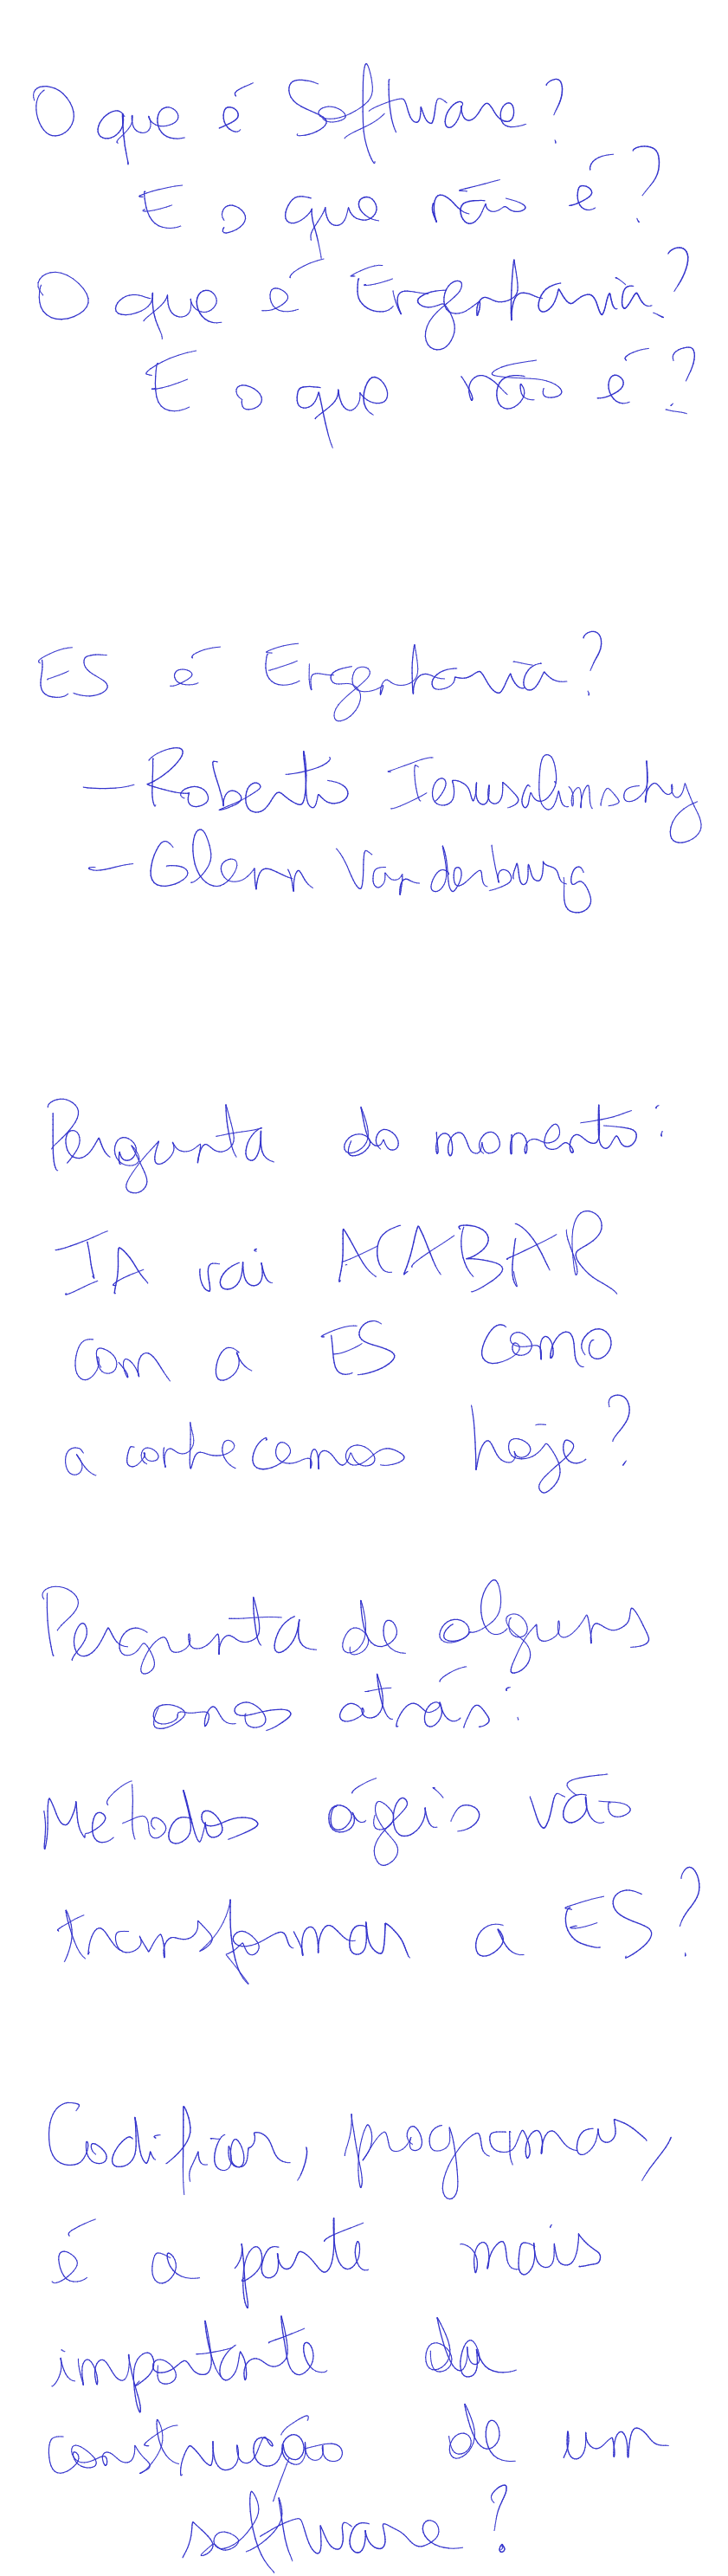 O que é Software?
E o que não é?
O que é Engenharia?
E o que não é?
ES é Engenharia?
- Roberto Ierusalimschy
- Glenn Vanderburg
Pergunta do momento:
IA vai ACABAR
com a ES como
a conhecemos hoje?
Pergunta de alguns
anos atrás:
Métodos ágeis vão
transformar a ES?
Codificar, programar,
é a parte mais
importante da
construção de um
software?